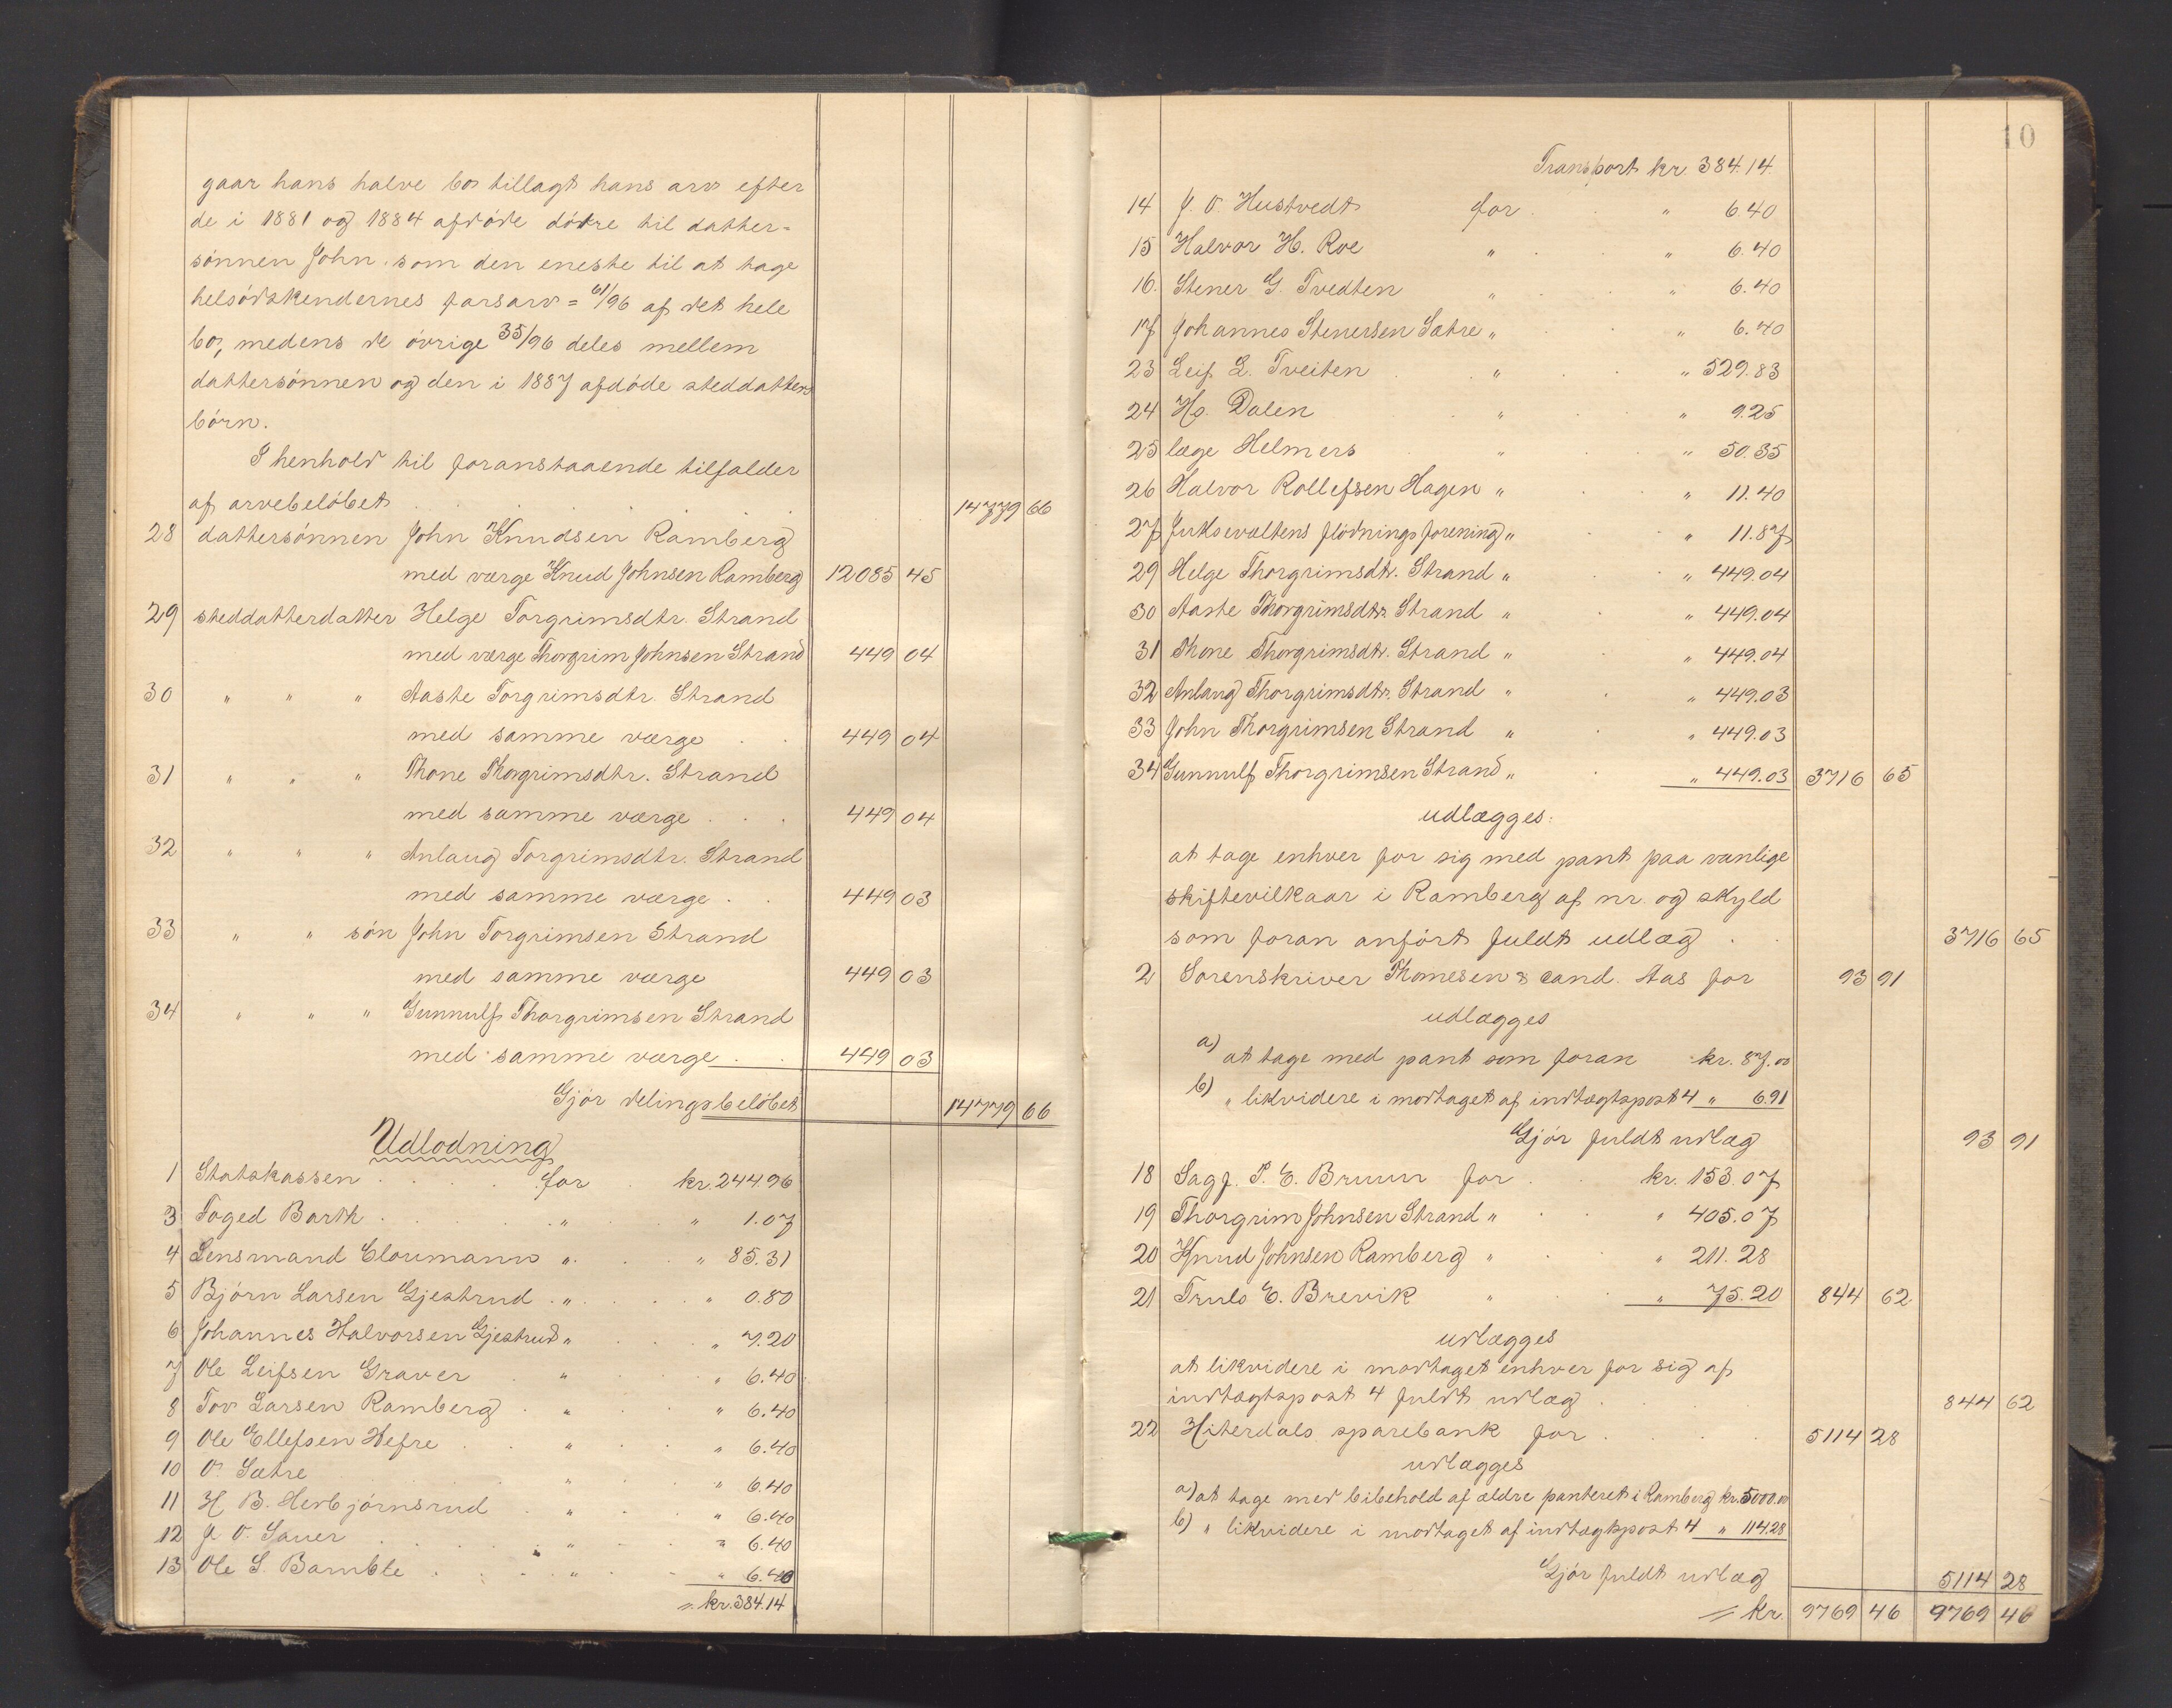 gaar hans halve bo tillagt hans arv efter
de i 1881 og 1884 afdöde döttre til datter=
sönnen John som den eneste til at tage
helsödskendernes farsarv = 61/96 af det hele
bo, medens de övrige 35/96 deles mellem
dattersönnen og den i 1887 afdöde steddatters
börn.
I henhold til foranstaaende tilfalder
af arvebelöbet . . . . . 14779 66
28 dattersönnen John Knudsen Ramberg
med værge Knud Johnsen Ramberg 12085 45
29 steddatterdatter Helge Torgrimsdtr. Strand
med værge Thorgrim Johnsen Strand 449 04
30 " " " Aaste Torgrimsdtr. Strand
med samme værge . . 449 04
31 " " " Thone Thorgrimsdtr. Strand
med samme værge . . . 449 04
32 " " " Anlaug Torgrimsdtr. Strand
med samme værge . . 449 03
33 " " sön John Torgrimsen Strand
med samme værge 449 03
34 " " " Gunnulf Thorgrimsen Strand
med samme værge . . 449 03
Gjör delingsbelöbet 14779 66
Udlodning
1 Statskassen . . . . for . kr. 244.96
3 Foged Barth . . . . " . " 1.07
4 Lensmand Cloumann " . . " 85.31
5 Björn Larsen Gjestrud . " . . " 0.80
6 Johannes Halvorsen Gjestrud " . . " 7.20
7 Ole Leifsen Graver . " . . " 6.40
8 Tov Larsen Ramberg . " . . " 6.40
9 Ole Ellefsen Hefre . . " . . " 6.40
10 O. Sætre . . . " . . " 6.40
11 H. B. Herbjörnsrud . " . . " 6.40
12 J. O. Sauer . . . . " . . " 6.40
13 Ole S. Bamble . . . " . . " 6.40
= kr. 384.14
10
Transport kr. 384.14
14 J. O. Hustvedt for . . " 6.40
15 Halvor H. Roe " . . " 6.40
16. Stener G. Tvedten " . . " 6.40
17 Johannes Stenersen Sætre " . . " 6.40
23 Leif L. Tveiten . " . . " 529.83
24 Hs. Dalen . " . . " 9.25
25 læge Helmers . " . . " 50.35
26 Halvor Rollefsen Hagen " . . " 11.40
27 Juksevaltens flödningsforening " . . " 11.87
29 Helge Thorgrimsdtr. Strand " . . " 449.04
30 Aaste Thorgrimsdtr. Strand " . " 449.04
31 Thone Thorgrimsdtr. Strand " . " 449.04
32 Anlaug Thorgrimsdtr. Strand " . " 449.03
33 John Thorgrimsen Strand " . " 449.03
34 Gunnulf Thorgrimsen Strand " . " 449.03 3716 65
udlægges:
at tage enhver for sig med pant paa vanlige
skiftevilkaar i Ramberg af nr. og skyld
som foran anfört fuldt udlæg . . 3716 65
2 Sorenskriver Thomesen & cand. Aas for 93 91
udlægges
a) at tage med pant som foran kr. 87.00
b) " likvidere i modtaget af indtægtspost 4 " 6.91
Gjör fuldt udlæg 93 91
18 Sagf. P. E. Bruun for . . kr. 153.07
19 Thorgrim Johnsen Strand " . . " 405.07
20 Knud Johnsen Ramberg " . . " 211.28
21 Truls E. Brevik " . . " 75.20 844 62
udlægges
at likvidere i modtaget enhver for sig af
indtægtspost 4 fuldt udlæg . . . . 844 62
22 Hiterdals sparebank for . . . . 5114 28
udlægges
a) at tage med bibehold af ældre panteret i Ramberg kr. 5000.00
b) " likvidere i modtaget af indtægtspost 4 " 114.28
Gjör fuldt udlæg 5114 28
= kr. 9769 46 9769 46